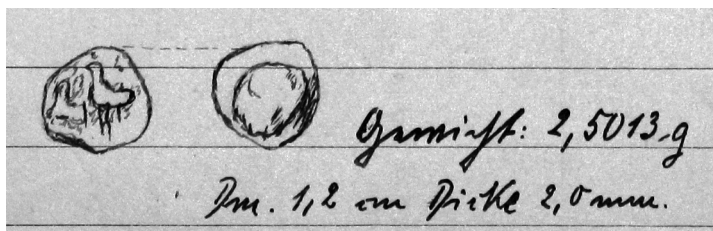 Gewicht: 2,5013 g
Dm. 1,2 cm Dicke 2,0 mm.